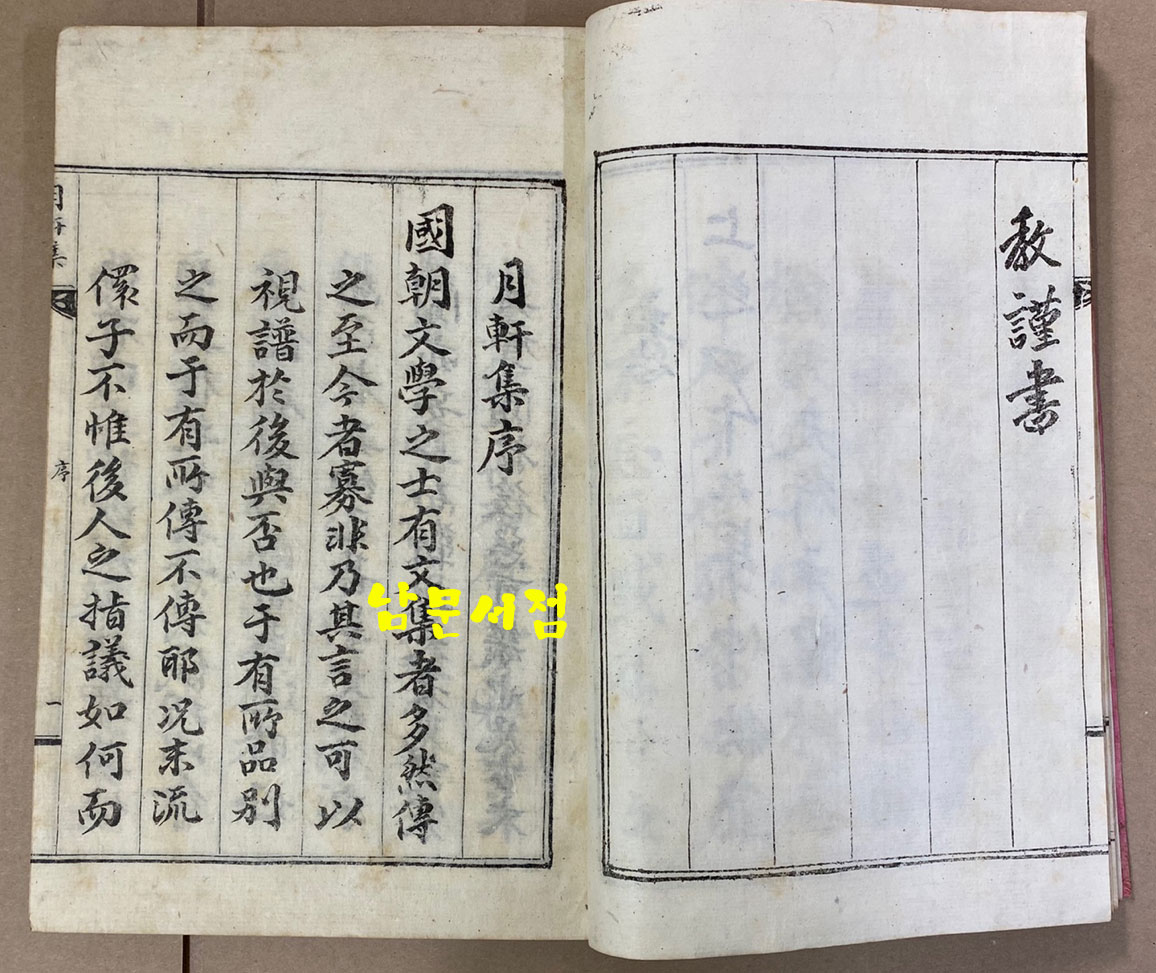 敎謹書
月軒集序
國朝文學之士有文集者多然傳
之至今者寡非乃其言之可以
視譜於後與否也于有所品別
之而于有所傳不傳耶况末流
儇子不惟後人之指議如何而
月軒集
序
一
남문서점